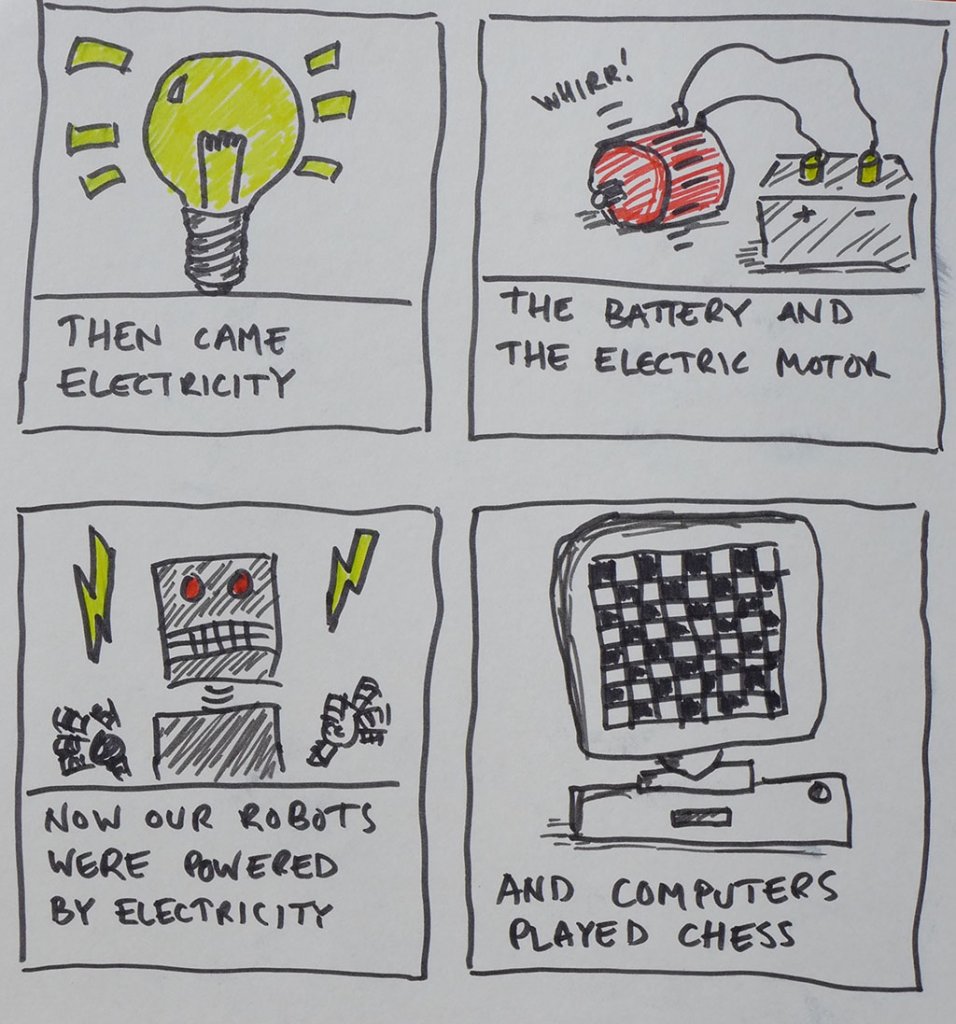 THEN CAME
ELECTRICITY
WHIRR!
+ -
THE BATTERY AND
THE ELECTRIC MOTOR
NOW OUR ROBOTS
WERE POWERED
BY ELECTRICITY
AND COMPUTERS
PLAYED CHESS